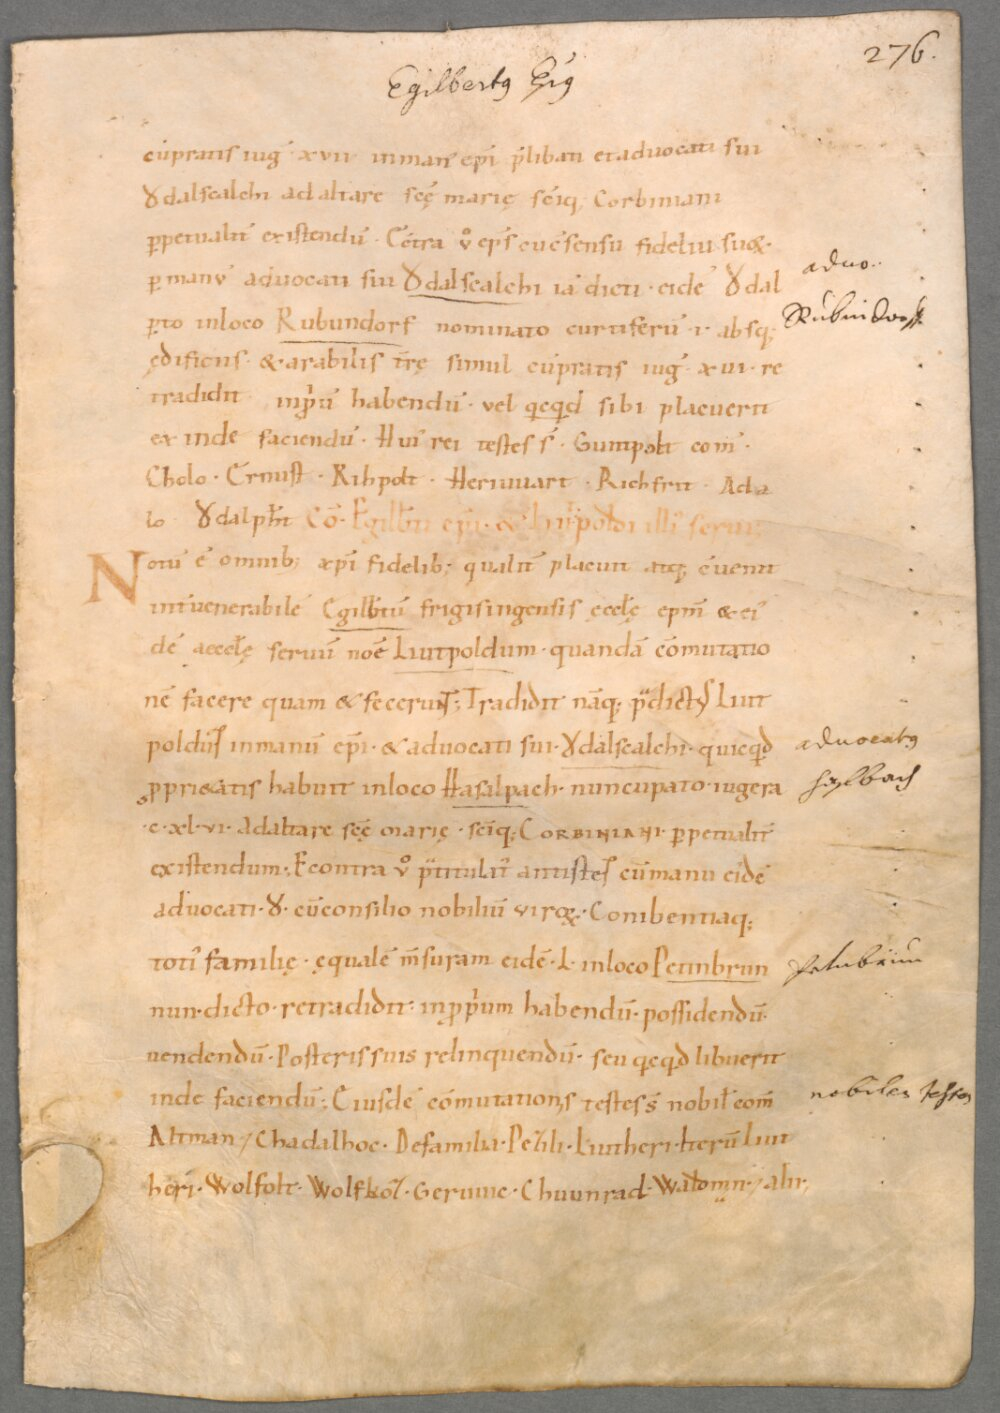 276.
Egilbertꝰ Epꝰ
cũpratis iug̃ xvii inmanꝰ ep̃i p̃libati etadvocati sui
Ỽdalscalchi ad altare sc̃ę marię sc̃iq; Corbiniani
ꝑpetualit̃ existendũ · Cõtra ṽ ep̃s cũcõsensu fidelium suoꝝ·
ꝑ manũ advocati sui Ỽdalscalchi iã dicti · eidẽ Ỽdal
ꝑto inloco Rubundorf nominato curtiferũ · i · absq;
ędificiis · & arabilis tr̃ę simul cũpratis iug̃ · xvi · re
tradidit inp̃p̃ũ habendũ · vel qicqid sibi placuerit
ex inde faciendũ · Huiꝰ rei testes s̃ · Guntpolt com̃ ·
Cholo · Ernust · Rihpolt · Heriuuart · Richfrit · Ada
lo Ỽdalpht̃ Cõ · Egilb̃ti ep̃i · & Liutpoldi illiꝰ serui;
Notũ ẽ omnib; xp̃i fidelib; qualit̃ placuit atq; cõuenit
int̃ uenerabilẽ Egilb̃tũ frigisingensis ęccl̃ę ep̃m & ei
dẽ aeccl̃ę seruũ noẽ Liutpoldum · quandã cõmutatio
nẽ facere quam & fecerunt; Tradidit nãq; p̃dictꝰ Liut
poldus inmanũ ep̃i · & advocati sui · Ỽdalscalchi · quicqd
ꝓprietatis habuit inloco Hasalpach · nuncupato · iugera
·c·xl·vi· Adaltare sc̃ę marię · sc̃iq; CORBINIANI · ꝑpetualit̃
existendum · Econtra ṽ p̃titulatꝰ antistes cũmanu eidẽ
advocati · Ỽ · cũconsilio nobiliũ viroꝝ · Conibentiaq;
totiꝰ familię · ęqualẽ m̃suram eidẽ · L · inloco Petinbrun
nun · dicto · retradidit · inp̃p̃ium habendũ · possidendũ ·
uendendũ · Posteris suis relinquendũ · seu qicqd libuerit
inde faciendũ; Eiusdẽ cõmutationis testes s̃ nobil̃ com̃
Altman / Chadalhoc · Defamilia · Pezili · Liutheri · Iterũ Liut
heri · Wolfolt · Wolfkoz · Geruuic · Chuunrad · Waltman / alii;
advo..
Rubindorff
advocatꝰ
haslbach
Petnbrun
nobiles testes